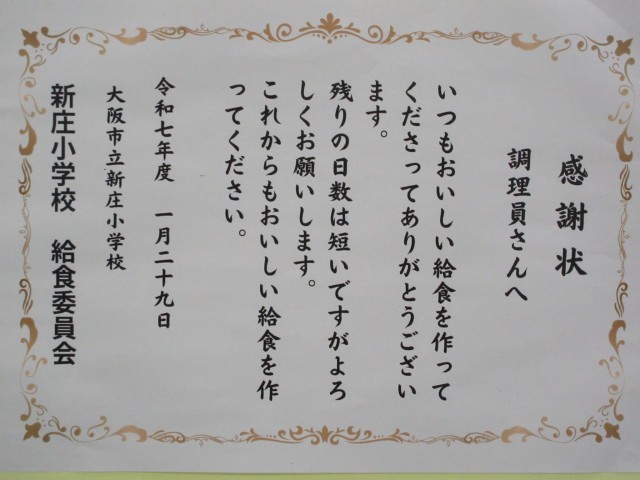 感謝状
調理員さんへ
いつもおいしい給食を作って
くださってありがとうござい
ます。
残りの日数は短いですがよろ
しくお願いします。
これからもおいしい給食を作
ってください。
令和七年度　一月二十九日
大阪市立新庄小学校
新庄小学校　給食委員会